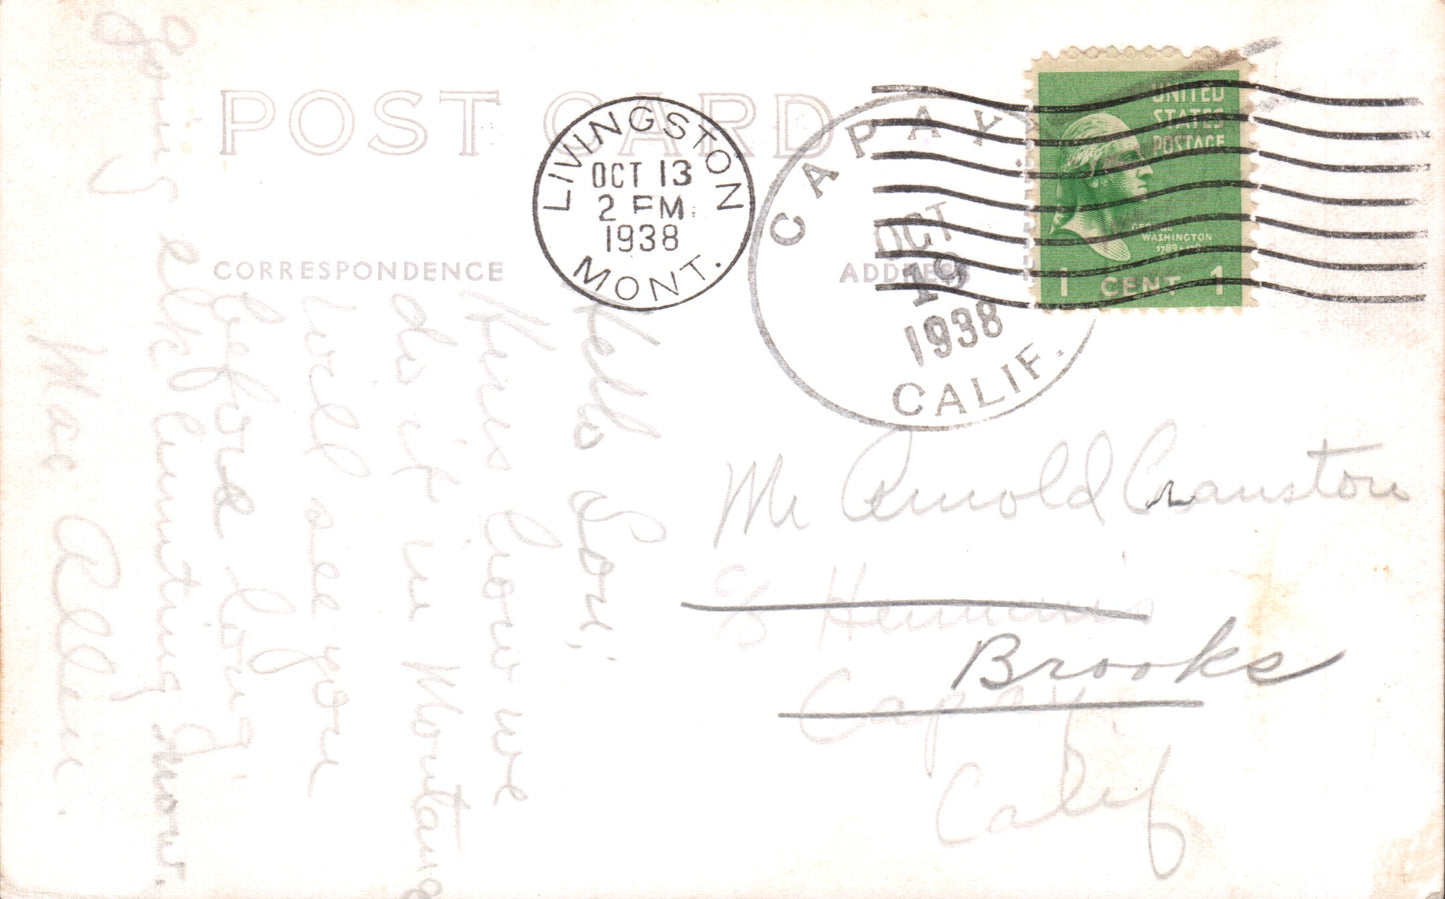 POST CARD
CORRESPONDENCE
ADDRESS
LIVINGSTON
OCT 13
2 PM
1938
MONT.
CAPAY
OCT
19
1938
CALIF.
UNITED
STATES
POSTAGE
GEORGE
WASHINGTON
1 CENT 1
Mr Arnold Cranston
c/o
Brooks
Capay
Calif
Hello
Here's how we
do it in Montana
will see you
before long.
going elk hunting now.
Mac